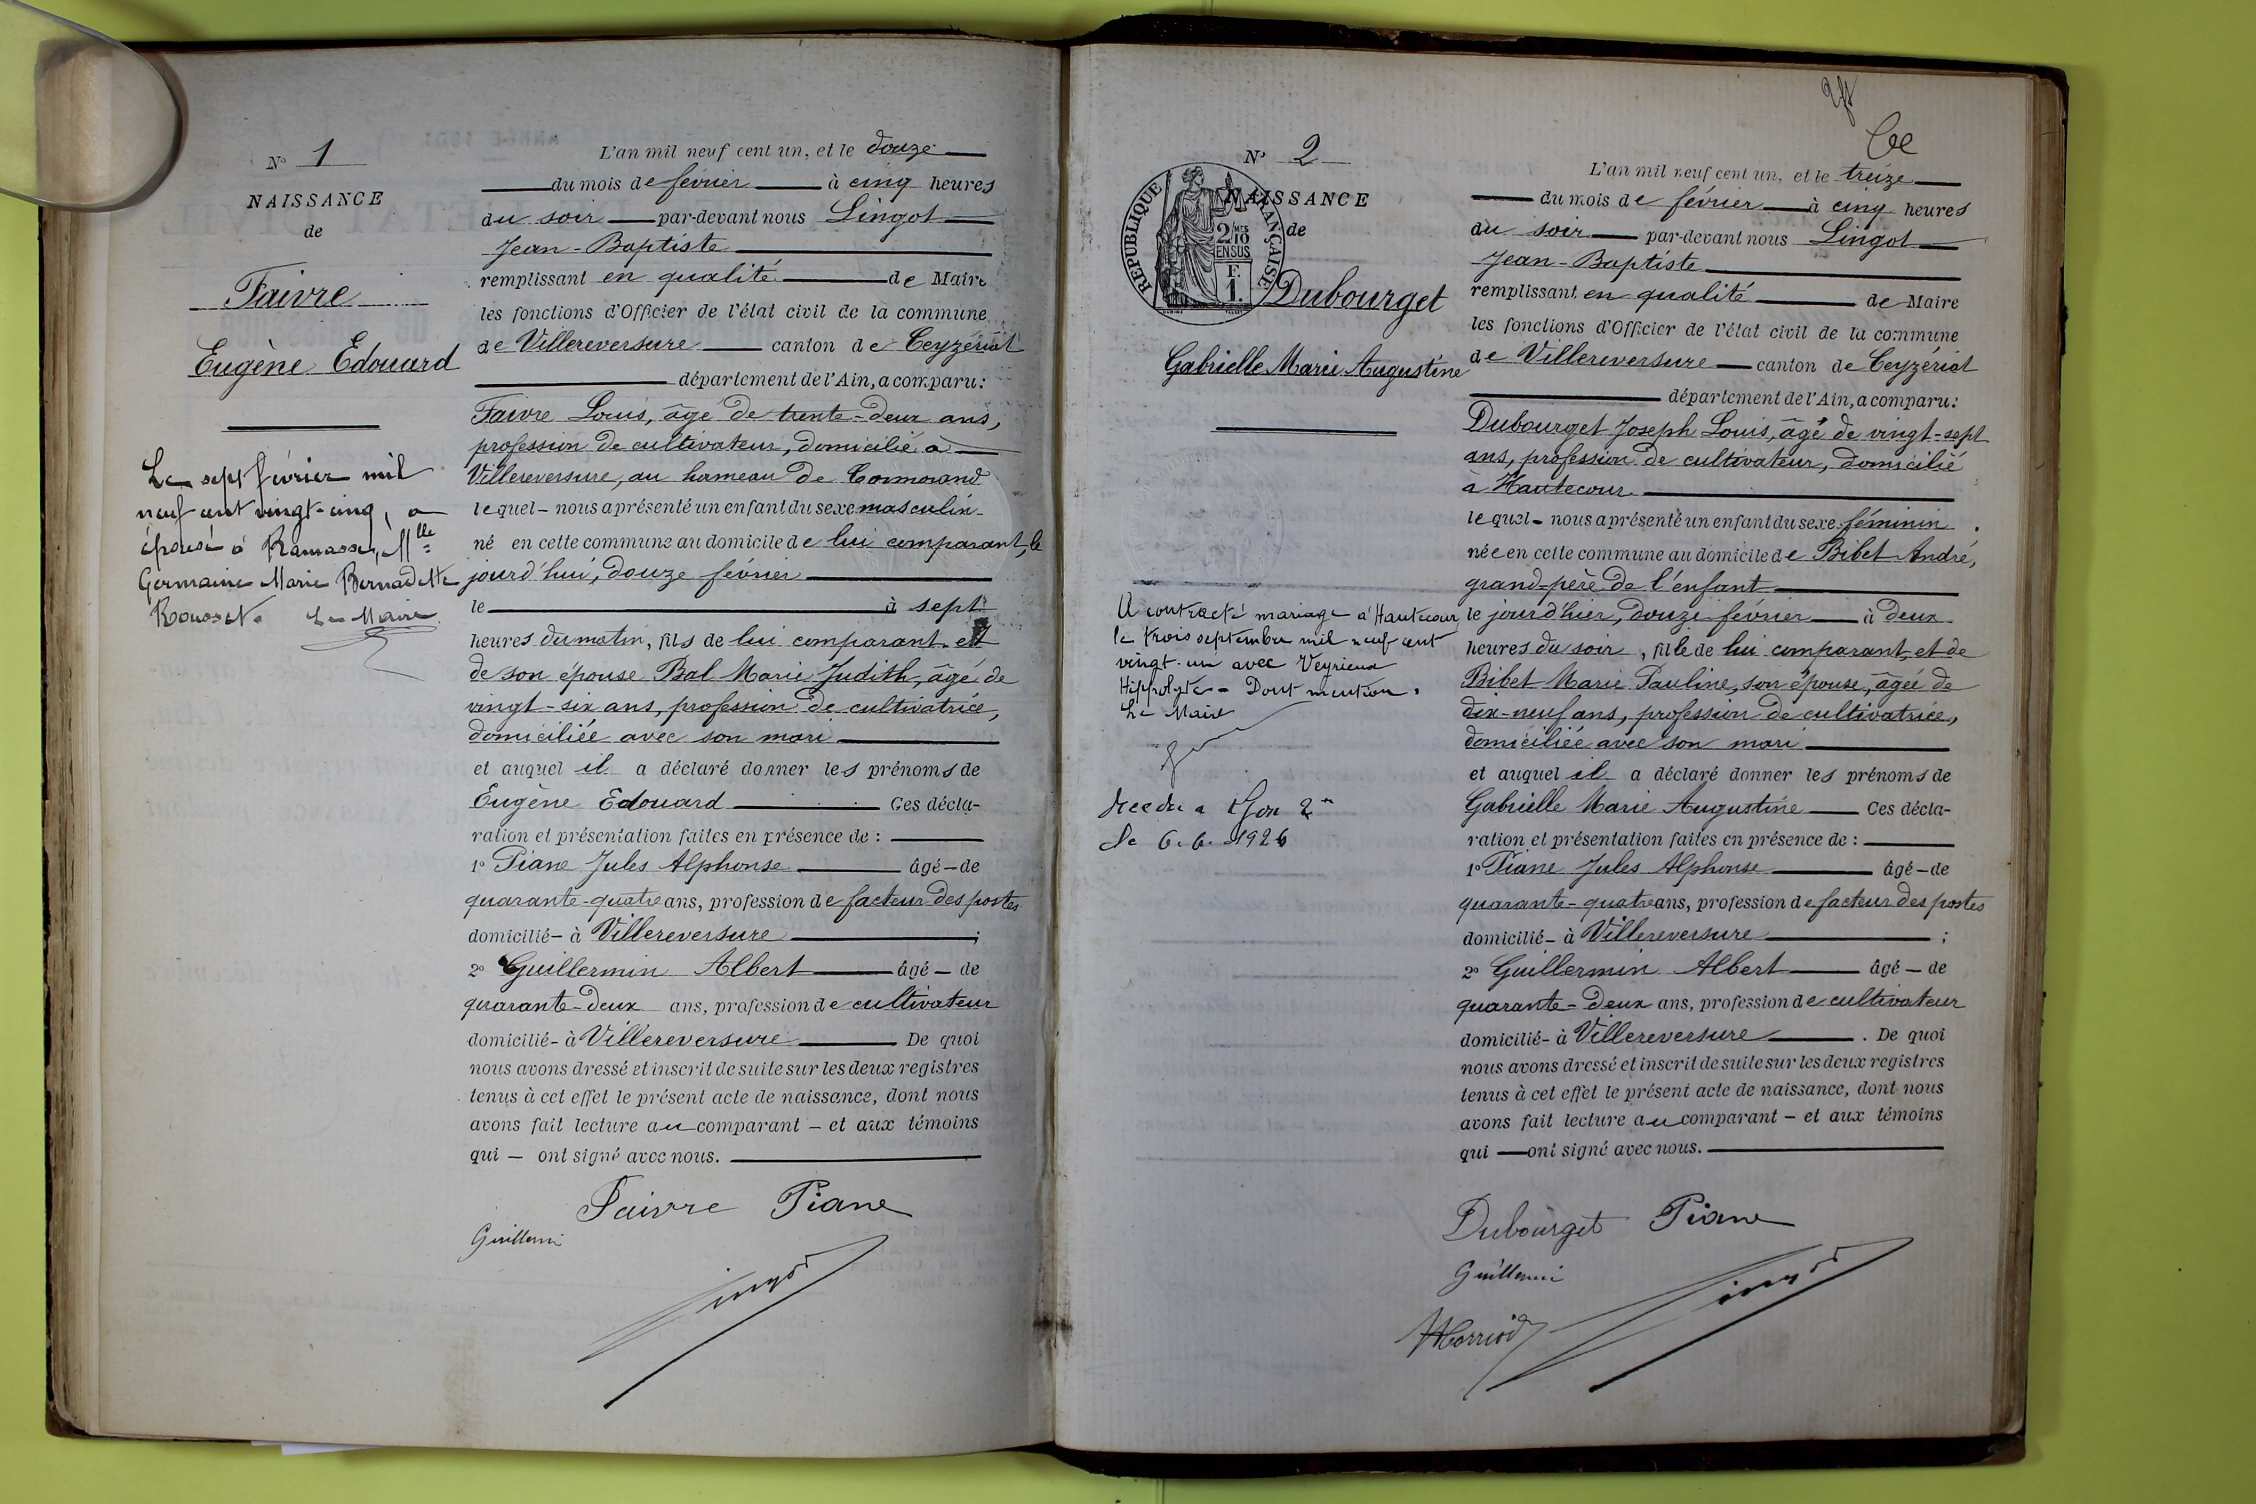 N° 1
NAISSANCE
de
Faivre
Eugène Edouard
Le sept février mil
neuf cent vingt-cinq, a
épousé à Ramasse, Mlle
Germaine Marie Bernadette
Rousset. Le Maire
L'an mil neuf cent un, et le douze
du mois de février à cinq heures
du soir par-devant nous Lingot
Jean-Baptiste
remplissant en qualité de Maire
les fonctions d'Officier de l'état civil de la commune
de Villereversure canton de Ceyzériat
département de l'Ain, a comparu:
Faivre Louis, âgé de trente-deux ans,
profession de cultivateur, domicilié à
Villereversure, au hameau de Cormorand
lequel - nous a présenté un enfant du sexe masculin
né en cette commune au domicile de lui comparant, le
jourd'hui, douze février
le à sept
heures du matin, fils de lui comparant et
de son épouse Bal Marie Judith, âgé de
vingt-six ans, profession de cultivatrice,
domiciliée avec son mari
et auquel il a déclaré donner les prénoms de
Eugène Edouard Ces décla-
ration et présentation faites en présence de :
1° Piane Jules Alphonse âgé - de
quarante-quatre ans, profession de facteur des postes
domicilié - à Villereversure ;
2° Guillermin Albert âgé - de
quarante-deux ans, profession de cultivateur
domicilié - à Villereversure De quoi
nous avons dressé et inscrit de suite sur les deux registres
tenus à cet effet le présent acte de naissance, dont nous
avons fait lecture au comparant - et aux témoins
qui - ont signé avec nous.
Faivre Piane
Guillermi
Lingot
N° 2
NAISSANCE
de
REPUBLIQUE FRANÇAISE
2/10 MES
EN SUS
F.
1.
Dubourget
Gabrielle Marie Augustine
A contracté mariage à Hautecour
le trois septembre mil neuf cent
vingt-un avec Veyrieux
Hippolyte - Dont mention.
Le Maire
Décédée à Lyon 2e
le 6.6.1926
L'an mil neuf cent un, et le treize
du mois de février à cinq heures
du soir par-devant nous Lingot
Jean-Baptiste
remplissant en qualité de Maire
les fonctions d'Officier de l'état civil de la commune
de Villereversure canton de Ceyzériat
département de l'Ain, a comparu:
Dubourget Joseph Louis, âgé de vingt-sept
ans, profession de cultivateur, domicilié
à Hautecour
lequel - nous a présenté un enfant du sexe féminin
née en cette commune au domicile de Bibet André,
grand-père de l'enfant
le jour d'hier, douze février à deux
heures du soir, fille de lui comparant, et de
Bibet Marie Pauline, son épouse, âgée de
dix-neuf ans, profession de cultivatrice,
domiciliée avec son mari
et auquel il a déclaré donner les prénoms de
Gabrielle Marie Augustine Ces décla-
ration et présentation faites en présence de :
1° Piane Jules Alphonse âgé - de
quarante-quatre ans, profession de facteur des postes
domicilié - à Villereversure ;
2° Guillermin Albert âgé - de
quarante-deux ans, profession de cultivateur
domicilié - à Villereversure . De quoi
nous avons dressé et inscrit de suite sur les deux registres
tenus à cet effet le présent acte de naissance, dont nous
avons fait lecture au comparant - et aux témoins
qui - ont signé avec nous.
Dubourget Piane
Guillermi
Lingot